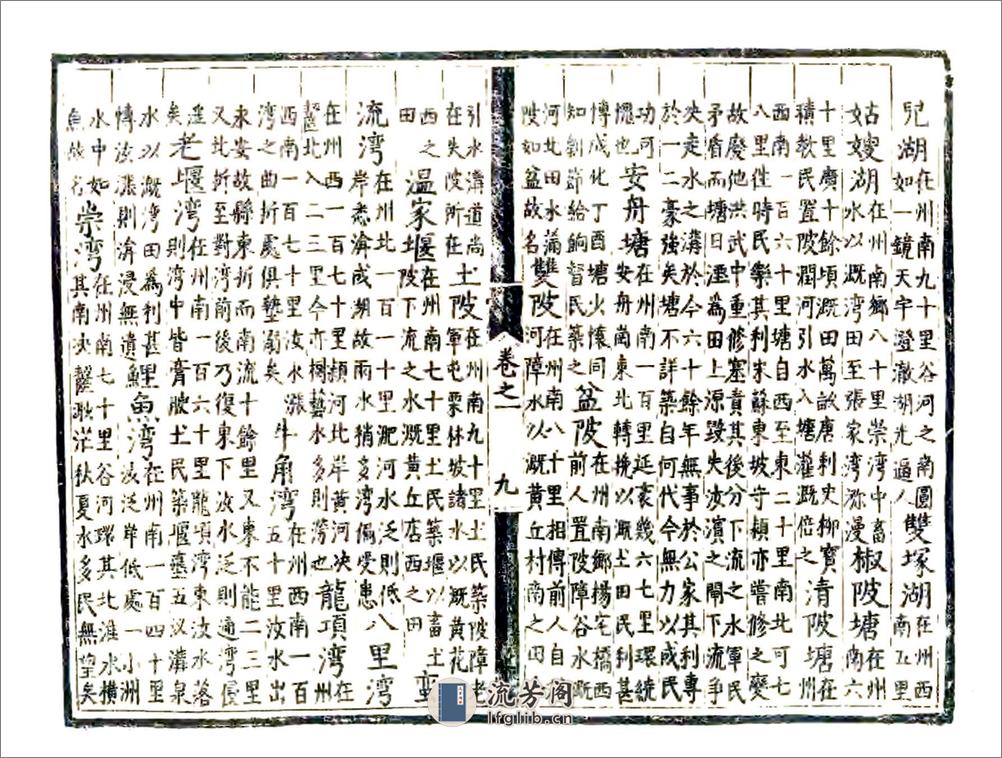 皃湖在州南九十里谷河之南圓如一鏡天宇澄澈湖光逼人雙塚湖在州西南五里
姑嫂湖在州南鄉八十里荣湾中畜水以溉湾田至張家湾弥漫椒陂塘在州南六
十里廣十餘頃溉田萬畝唐刺史柳寶積教民置陂潤河引水入塘灌溉倍之清陂塘在州
西南一百六十里塘自西至東二十里南北可七
八里往時民樂其利宋蘇東坡守頴亦嘗修之變
故廢他洪武中重修塞責其後分下流之水軍民
矛盾而塘日湮為田上源毀失汝濱之閘下流爭
决走水之溝於今六十餘年無事於公家其利專
於一二豪強矣塘不詳築自何代今無力以或民
功可慨也安舟塘在州南一百里延袤幾六七里環繞安舟崗東北轉挽以溉土田民利甚
博成化丁酉塘少懷同知劉節給餉督民築之盆陂在州南鄉楊宅橋西前人置陂障谷水溉
河北田水滿陂如盆故名雙陂在州南八十里相傳前人自河障水以溉黄丘村南之田
卷之一
九
引水溝道尚在失陂所在土陂在州南九十里土民築陂障老軍屯栗林坡諸水以溉黄花
西之田温家堰在州南七十里土民築堰以畜土陂下流之水溉黄丘店西之田蛮
流湾在州北一百一十里淝河水泛則低岸悉渰成湖故雨水稍多湾偏受患八里湾
在州西一百七十里頴河北岸黄河决鑿北入二三里今亦桐藝水多則澇也龍項湾在州
西南一百七十里汝水漲湾之曲折處俱墊溺矣牛角湾在州西南一百五十里汝水出
永安故縣東折而南流十餘里又東不能二三里
又北折至對湾前後乃復東下汝水泛則適湾優
淫矣老堰湾在州南一百六十里龍項湾東汝水落則湾中皆膏腴土民築堰臺五以溝泉
水以溉湾田為利甚博汝漲則渰浸無遺鯉魚湾在州南一百四十里谷泛岸低處一小洲
水中如魚故名崇湾在州南七十里谷河環其北淮水横其南决囓渺茫秋夏水多民無望矣
流芳阁
lfglib.cn